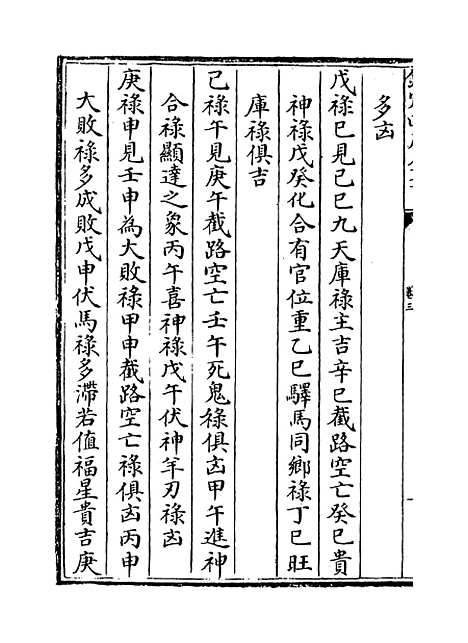 多凶
戊祿巳見己巳九天庫祿主吉辛巳截路空亡癸巳貴
神祿戊癸化合有官位重乙巳驛馬同鄉祿丁巳旺
庫祿俱吉
己祿午見庚午截路空亡壬午死鬼祿俱凶甲午進神
合祿顯達之象丙午喜神祿戊午伏神羊刃祿凶
庚祿申見壬申為大敗祿甲申截路空亡祿俱凶丙申
大敗祿多成敗戊申伏馬祿多滯若值福星貴吉庚